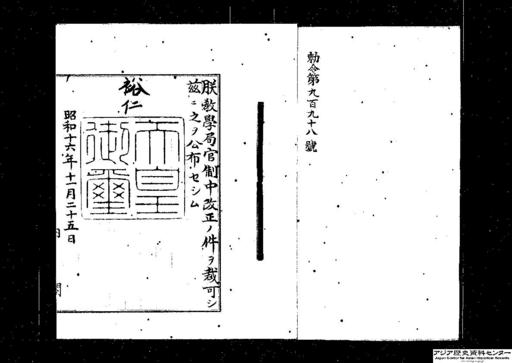 勅令第九百九十八號
朕敎學局官制中改正ノ件ヲ裁可シ
茲ニ之ヲ公布セシム
裕仁
天皇
御璽
昭和十六年十一月二十五日
內閣
アジア歴史資料センター
Japan Center for Asian Historical Records